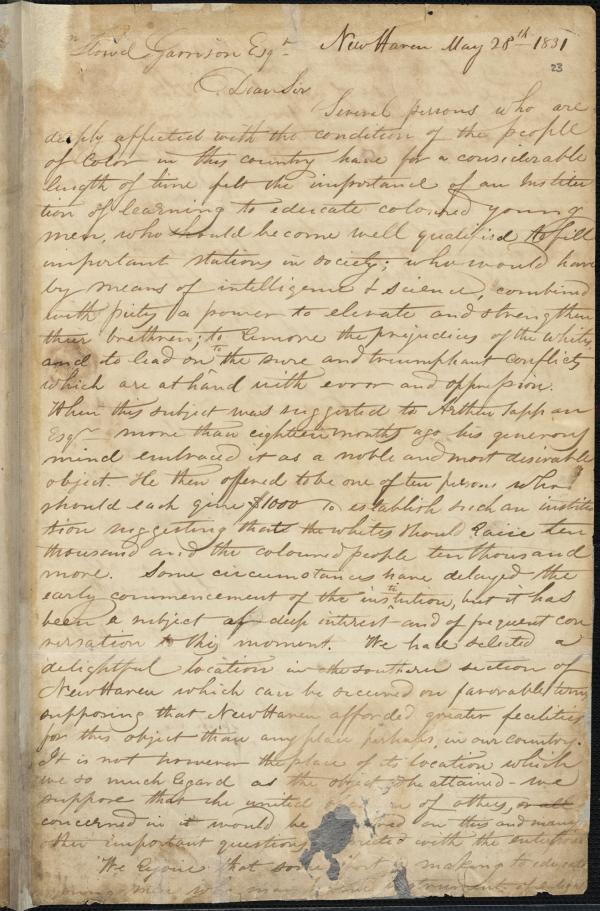 Lloyd Garrison Esqr. New Haven May 28th 1831
23
Dear Sir
Several persons who are
deeply affected with the condition of the people
of Color in this country have for a considerable
length of time felt the importance of an Institu
tion of learning to educate colored young
men, who should become well qualified to fill
important stations in society; who would have
by means of intelligence & science, combined
with piety a power to elevate and strengthen
their brethren; to remove the prejudices of the whites
and to lead on to the sure and triumphant conflicts
which are at hand with error and oppression.
When this subject was suggested to Arthur Tappan
Esqr more than eighteen months ago his generous
mind embraced it as a noble and most desirable
object. He then offered to be one of ten persons who
should each give $1000 to establish such an institu
tion suggesting that the whites should raise ten
thousand and the coloured people ten thousand
more. Some circumstances have delayed the
early commencement of the institution, but it has
been a subject of deep interest and of frequent con
versation to this moment. We have selected a
delightful location in the southern section of
New Haven which can be secured on favorable terms
supposing that New Haven afforded greater facilities
for this object than any place perhaps, in our country.
It is not however the place of its location which
we so much regard as the object to be attained - we
suppose that the united of others, or all
concerned in it would be on this and many
other important questions with the
We rejoice that some making to educate
young men who may instruments of